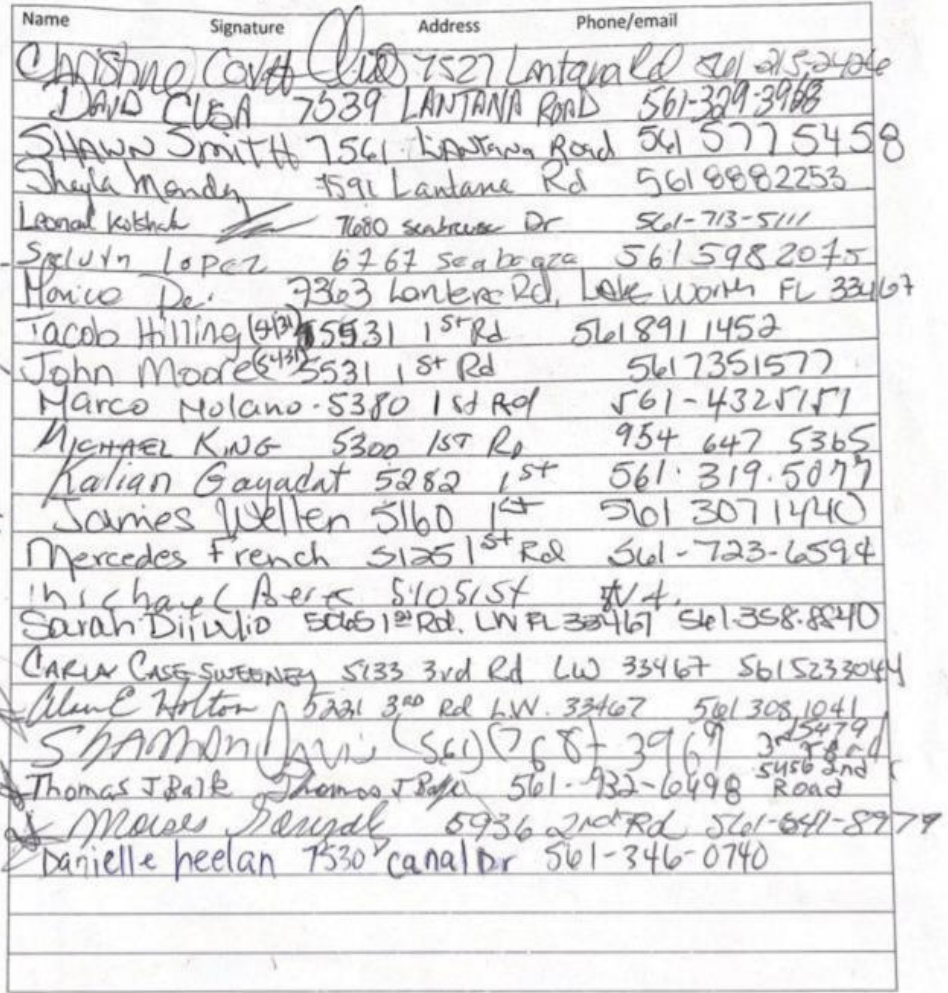 Name Signature Address Phone/email
7527 Lantana Rd 561 215-2426
DAVID CUSA 7539 LANTANA ROAD 561-329-3968
SHAWN SMITH 7561 LANTANA Road 561 577 5458
Sheyla Mendez 7591 Lantana Rd 561 8882253
Leonard Kolshak 7680 Dr 561-713-5111
LOPEZ 6767 561 598 2075
Monica 7363 Rd, Lake Worth FL 33467
Jacob Hilling 5531 1st Rd 561891 1452
John Moore 5531 1st Rd 5617351577
Marco Molano - 5380 1st Rd 561-4325151
MICHAEL KING 5300 1ST RD 954 647 5365
Kalian Gayadat 5282 1st 561. 319.5077
James Wellen 5160 1st 561 3071440
Mercedes French 5125 1st Rd 561-723-6594
Michael 5105 1st
Sarah DiIulio 5065 1st Rd. LW FL 33467 561.358.8840
CARLA CASE SWEENEY 5133 3rd Rd LW 33467 5615233044
Alan E Holton 5221 3RD Rd L.W. 33467 561 308 1041
(561) 768-3969 5479 3rd
Thomas J Balk Thomas J 561-932-6498 5456 2nd Road
Moises 5936 2nd Rd 561-641-8979
Danielle heelan 7530 canal Dr 561-346-0740